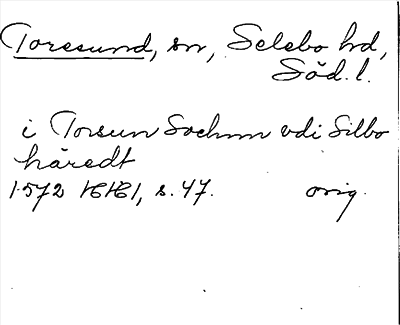 Toresund, sn, Selebo hd,
Söd. l.
i Torsun Sochnn vdi Silbo
häredt
1572 HH 1, s. 47. orig.